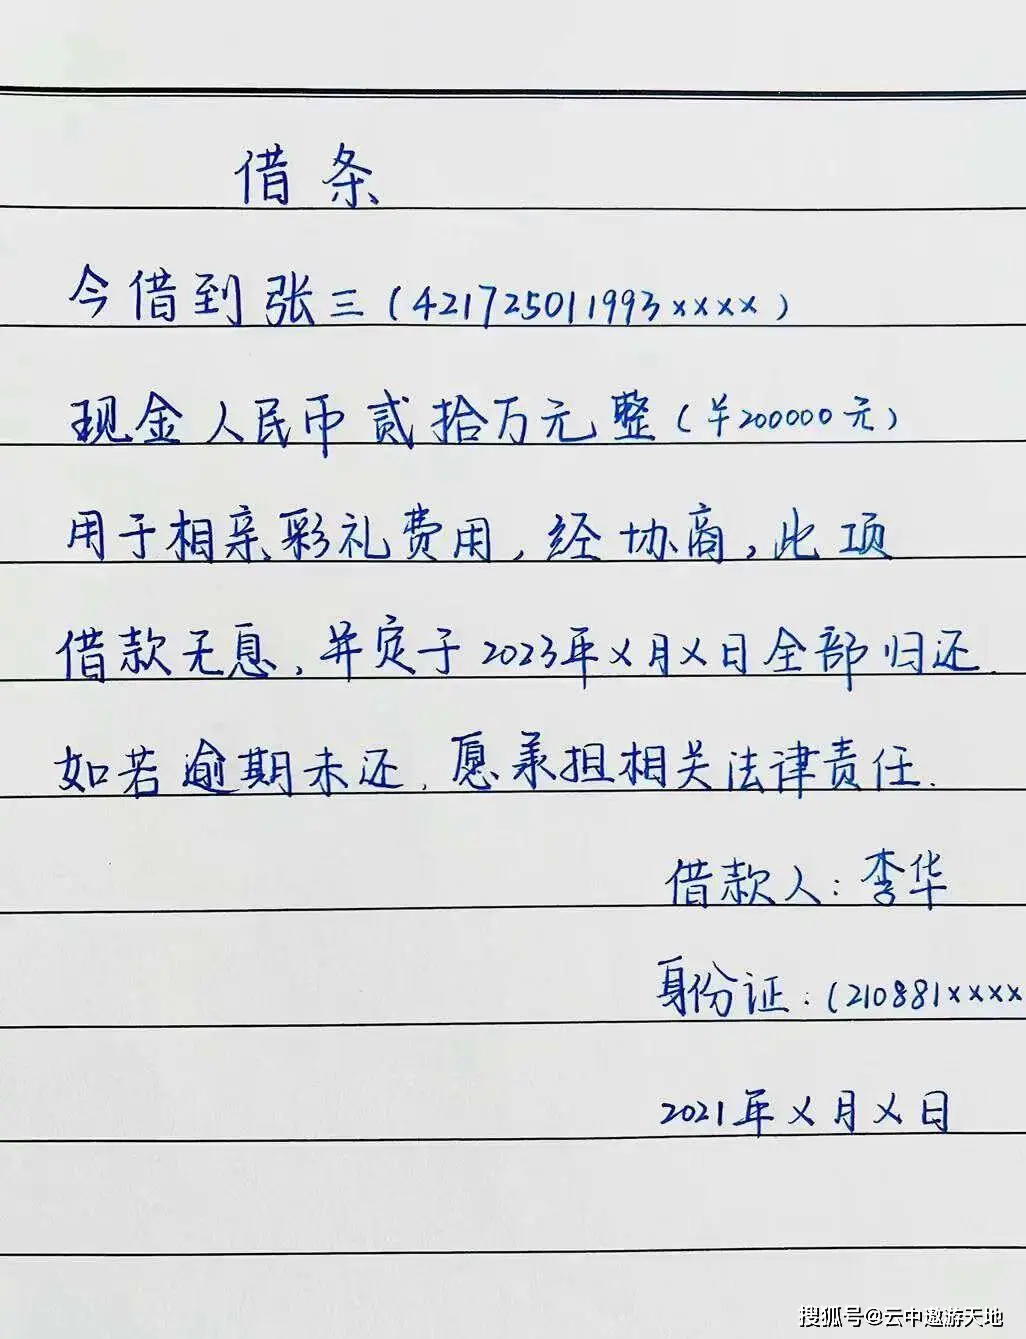 借条
今借到张三(421725011993××××)
现金人民币贰拾万元整(¥200000元)
用于相亲彩礼费用,经协商,此项
借款无息,并定于2023年×月×日全部归还.
如若逾期未还,愿承担相关法律责任.
借款人:李华
身份证:(210881××××
2021年×月×日
搜狐号@云中遨游天地